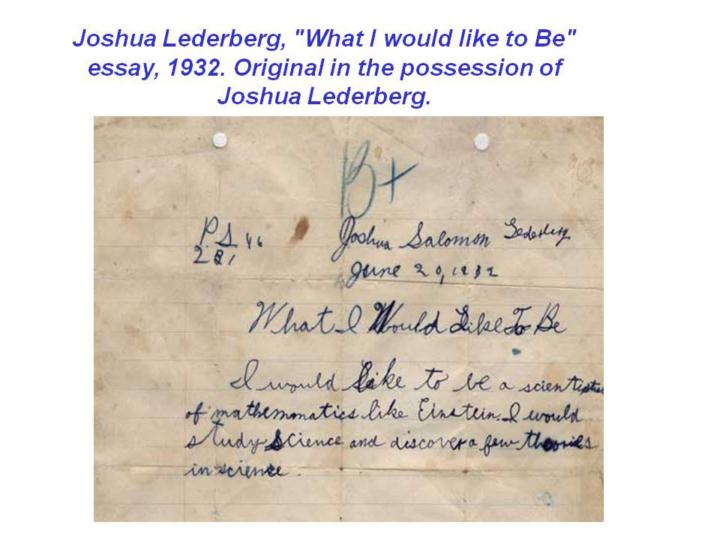 Joshua Lederberg, "What I would like to Be"
essay, 1932. Original in the possession of
Joshua Lederberg.
B+
P.S. 46 Joshua Salomon Lederberg
2B1
June 20, 1932
What I Would Like To Be
I would like to be a scientist
of mathemonatics like Einstein. I would
study science and discover a few theories
in science.